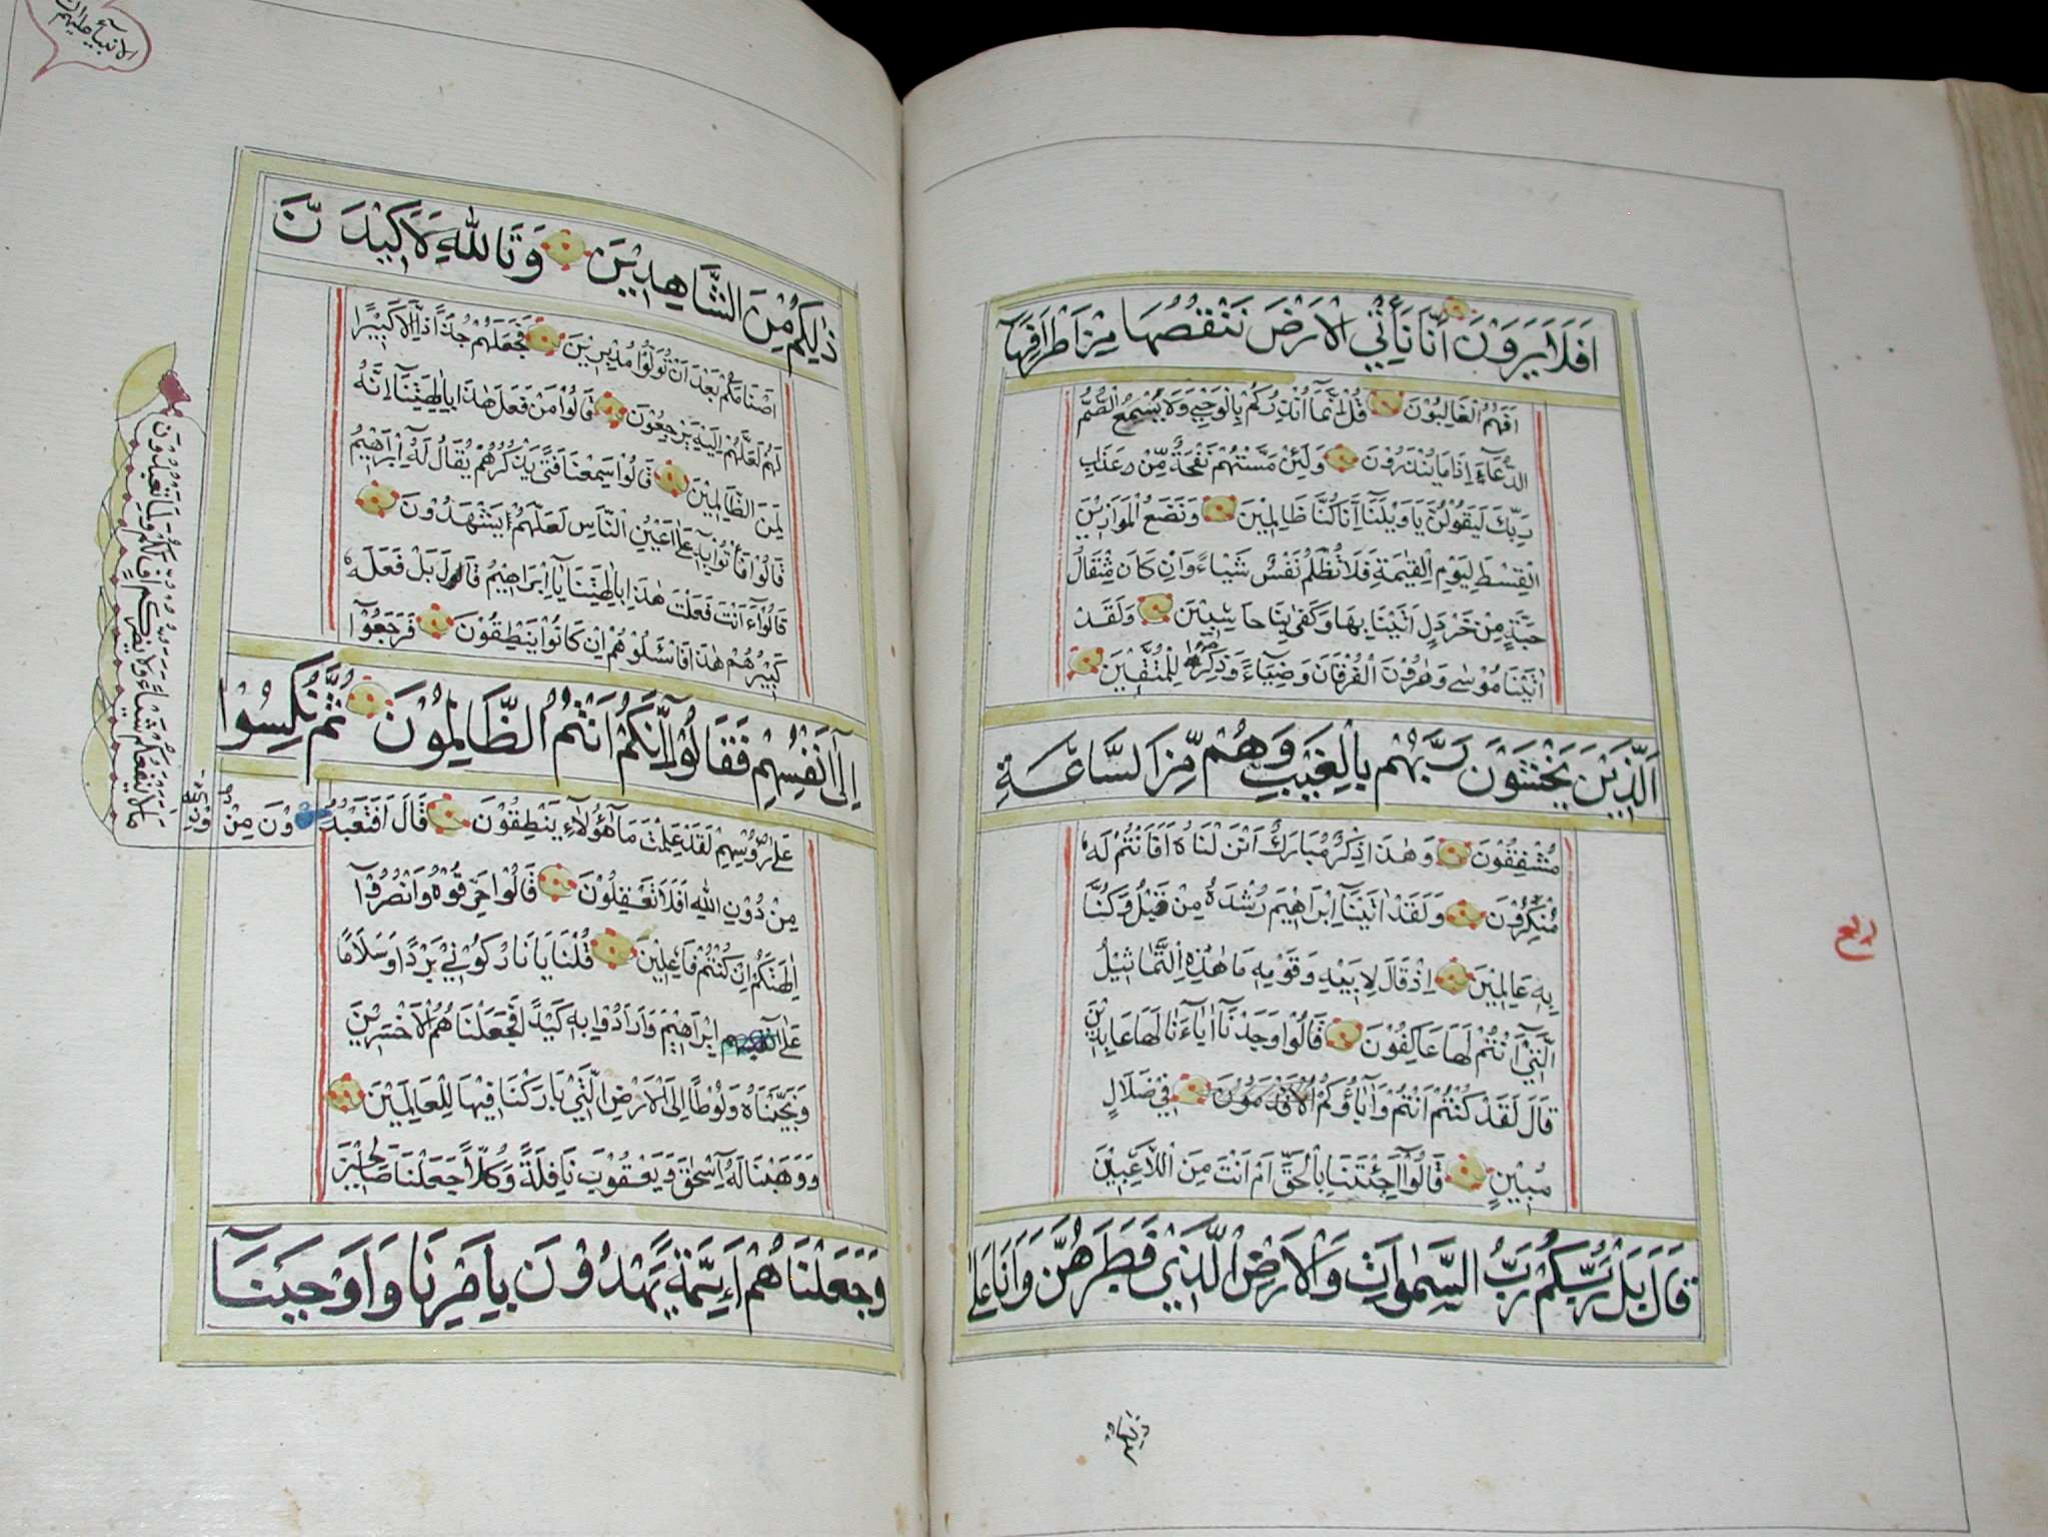 اَفَلَا يَرَوْنَ اَنَّا نَأْتِي الْاَرْضَ نَنْقُصُهَا مِنْ اَطْرَافِهَا
اَفَهُمُ الْغَالِبُوْنَ قُلْ اِنَّمَا اُنْذِرُكُمْ بِالْوَحْيِ وَلَا يَسْمَعُ الصُّمُّ
الدُّعَاءَ اِذَا مَا يُنْذَرُوْنَ وَلَئِنْ مَسَّتْهُمْ نَفْحَةٌ مِّنْ عَذَابِ
رَبِّكَ لَيَقُوْلُنَّ يَا وَيْلَنَا اِنَّا كُنَّا ظَالِمِيْنَ وَنَضَعُ الْمَوَازِيْنَ
الْقِسْطَ لِيَوْمِ الْقِيٰمَةِ فَلَا تُظْلَمُ نَفْسٌ شَيْاءً وَاِنْ كَانَ مِثْقَالَ
حَبَّةٍ مِنْ خَرْدَلٍ اَتَيْنَا بِهَا وَكَفٰى بِنَا حَاسِبِيْنَ وَلَقَدْ
اٰتَيْنَا مُوْسٰى وَهٰرُوْنَ الْفُرْقَانَ وَضِيَآءً وَذِكْرًا لِلْمُتَّقِيْنَ
اَلَّذِيْنَ يَخْشَوْنَ رَبَّهُمْ بِالْغَيْبِ وَهُمْ مِّنَ السَّاعَةِ
مُشْفِقُوْنَ وَهٰذَا ذِكْرٌ مُبَارَكٌ اَنْزَلْنَاهُ اَفَاَنْتُمْ لَهُ
مُنْكِرُوْنَ وَلَقَدْ اٰتَيْنَا اِبْرَاهِيْمَ رُشْدَهُ مِنْ قَبْلُ وَكُنَّا
بِهِ عَالِمِيْنَ اِذْ قَالَ لِاَبِيْهِ وَقَوْمِهِ مَا هٰذِهِ التَّمَاثِيْلُ
الَّتِيْ اَنْتُمْ لَهَا عَاكِفُوْنَ قَالُوْا وَجَدْنَا اٰبَاءَنَا لَهَا عَابِدِيْنَ
قَالَ لَقَدْ كُنْتُمْ اَنْتُمْ وَاٰبَاؤُكُمْ فِيْ ضَلَالٍ
مُبِيْنٍ قَالُوْا اَجِئْتَنَا بِالْحَقِّ اَمْ اَنْتَ مِنَ اللَّاعِبِيْنَ
قَالَ بَلْ رَبُّكُمْ رَبُّ السَّمٰوَاتِ وَالْاَرْضِ الَّذِيْ فَطَرَهُنَّ وَاَنَا عَلٰى
ربع
ذٰلِكُمْ مِنَ الشَّاهِدِيْنَ وَتَاللهِ لَاَكِيْدَنَّ
اَصْنَامَكُمْ بَعْدَ اَنْ تُوَلُّوْا مُدْبِرِيْنَ فَجَعَلَهُمْ جُذَاذًا اِلَّا كَبِيْرًا
لَهُمْ لَعَلَّهُمْ اِلَيْهِ يَرْجِعُوْنَ قَالُوْا مَنْ فَعَلَ هٰذَا بِاٰلِهَتِنَا اِنَّهُ
لَمِنَ الظَّالِمِيْنَ قَالُوْا سَمِعْنَا فَتًى يَذْكُرُهُمْ يُقَالُ لَهُ اِبْرَاهِيْمُ
قَالُوْا فَأْتُوْا بِهِ عَلٰى اَعْيُنِ النَّاسِ لَعَلَّهُمْ يَشْهَدُوْنَ
قَالُوْا ءَاَنْتَ فَعَلْتَ هٰذَا بِاٰلِهَتِنَا يَا اِبْرَاهِيْمُ قَالَ بَلْ فَعَلَهُ
كَبِيْرُهُمْ هٰذَا فَاسْئَلُوْهُمْ اِنْ كَانُوْا يَنْطِقُوْنَ فَرَجَعُوْا
اِلٰى اَنْفُسِهِمْ فَقَالُوْا اِنَّكُمْ اَنْتُمُ الظَّالِمُوْنَ ثُمَّ نُكِسُوْا
عَلٰى رُؤُسِهِمْ لَقَدْ عَلِمْتَ مَا هٰؤُلَاءِ يَنْطِقُوْنَ قَالَ اَفَتَعْبُدُوْنَ مِنْ دُوْنِ اللهِ
مَا لَا يَنْفَعُكُمْ شَيْاءً وَلَا يَضُرُّكُمْ اُفٍّ لَكُمْ وَلِمَا تَعْبُدُوْنَ
مِنْ دُوْنِ اللهِ اَفَلَا تَعْقِلُوْنَ قَالُوْا حَرِّقُوْهُ وَانْصُرُوْا
اٰلِهَتَكُمْ اِنْ كُنْتُمْ فَاعِلِيْنَ قُلْنَا يَا نَارُ كُوْنِيْ بَرْدًا وَسَلَامًا
عَلٰى اِبْرَاهِيْمَ وَاَرَادُوْا بِهِ كَيْدًا فَجَعَلْنَاهُمُ الْاَخْسَرِيْنَ
وَنَجَّيْنَاهُ وَلُوْطًا اِلَى الْاَرْضِ الَّتِيْ بَارَكْنَا فِيْهَا لِلْعَالَمِيْنَ
وَوَهَبْنَا لَهُ اِسْحٰقَ وَيَعْقُوْبَ نَافِلَةً وَكُلًّا جَعَلْنَا صَالِحِيْنَ
وَجَعَلْنَاهُمْ اَئِمَّةً يَهْدُوْنَ بِاَمْرِنَا وَاَوْحَيْنَا